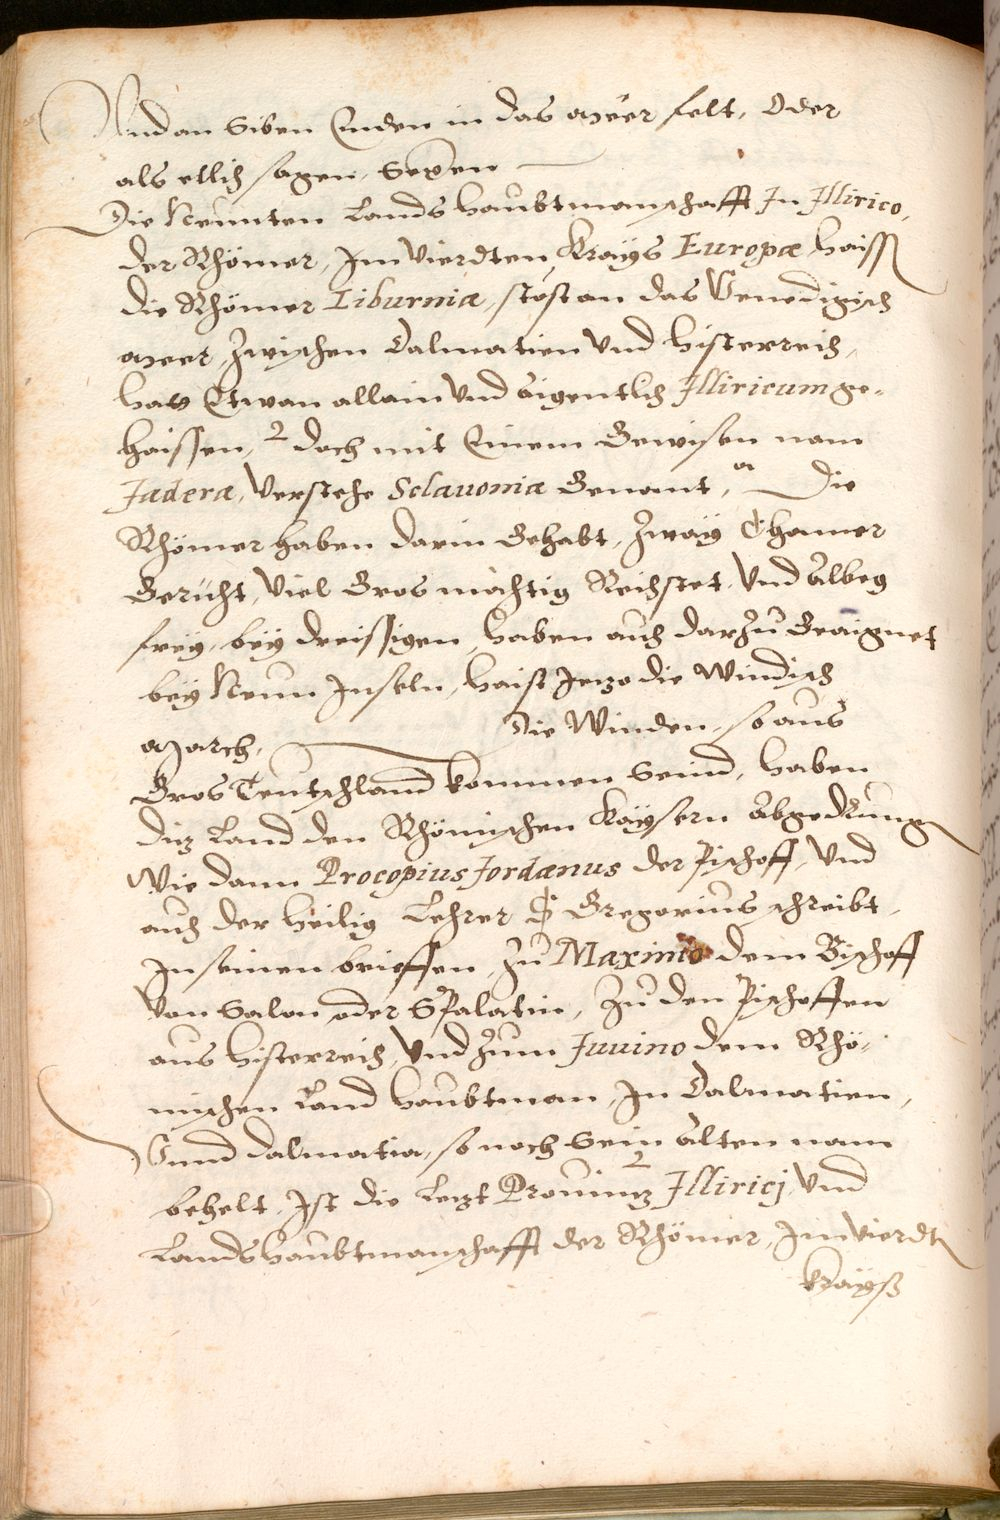 Und an Siben Enden in das Meer felt, Oder
als etlich sagen, Sexen
Die Neunten Landshaubtmanschafft In Illirico,
der Rhömer, Im Vierdten Krayß Europæ, haissn
die Rhömer Liburniæ, stost an das Venedigisch
Meer, Zwischen Dalmatien Und Histerreich,
hatt Etwan allain Und Aigentlich Illiricum ge-
haissen, Doch mit Einem Gewisen nam
Jaderæ, Verstehe Sclauoniæ Genant, Die
Rhömer haben darin Gehabt, Zwaÿ Chamer
Gericht, Viel Gros mächtig Reichstet, Und Albeg
freÿ, beÿ dreissigen, haben auch darzu Geaignet
beÿ Neun Inseln, haist Jetzo die Windisch
March, Die Winden, so aus
Gros Teutschland kommen Seind, haben
ditz Land den Rhömischen Kaÿsern Abgedrungen
Wie dann Procopius Jordænus der Pischoff, Und
auch der heilig Lehrer S Gregorius schreibt,
In seinen brieffen, Zu Maximo dem Bischoff
von Salon oder SPalatin, Zu den Pischoffen
aus Histerreich, Und Zum Juuino dem Rhö-
mischen Land haubtman, In Dalmatien,
Vnnd Dalmatia, so noch Sein Alten nam
behelt, Ist die Letzt Prouintz Illiricj, Und
Landshaubtmanschafft der Rhömer, Im Vierdtn
Krayß